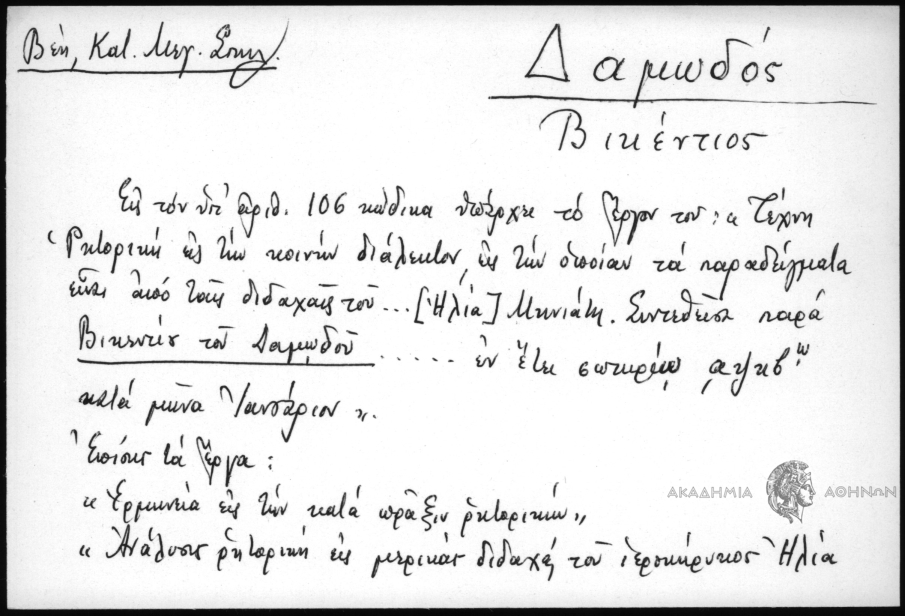 Βέη, Κατ. Μεγ. Σπηλ.
Δαμωδός
Βικέντιος
Εἰς τόν ὑπ' ἀριθ. 106 κώδικα ὑπάρχει τό ἔργον του: « Τέχνη
Ῥητορική εἰς τήν κοινήν διάλεκτον, εἰς τήν ὁποίαν τά παραδείγματα
εἶναι ἀπό ταῖς διδαχαῖς τοῦ ... [Ἠλία] Μηνιάτη. Συντεθεῖσα παρά
Βικεντίου τοῦ Δαμωδοῦ ...... ἐν ἔτει σωτηρίῳ ͵αψκβῳ
κατά μῆνα Ἰανουάριον ».
Ἐπίσης τά ἔργα :
« Ἑρμηνεία εἰς τήν κατά πρᾶξιν ῥητορικήν »
« Ἀνάλυσις ῥητορική εἰς μερικάς διδαχές τοῦ ἱεροκήρυκος Ἠλία
ΑΚΑΔΗΜΙΑ ΑΘΗΝΩΝ